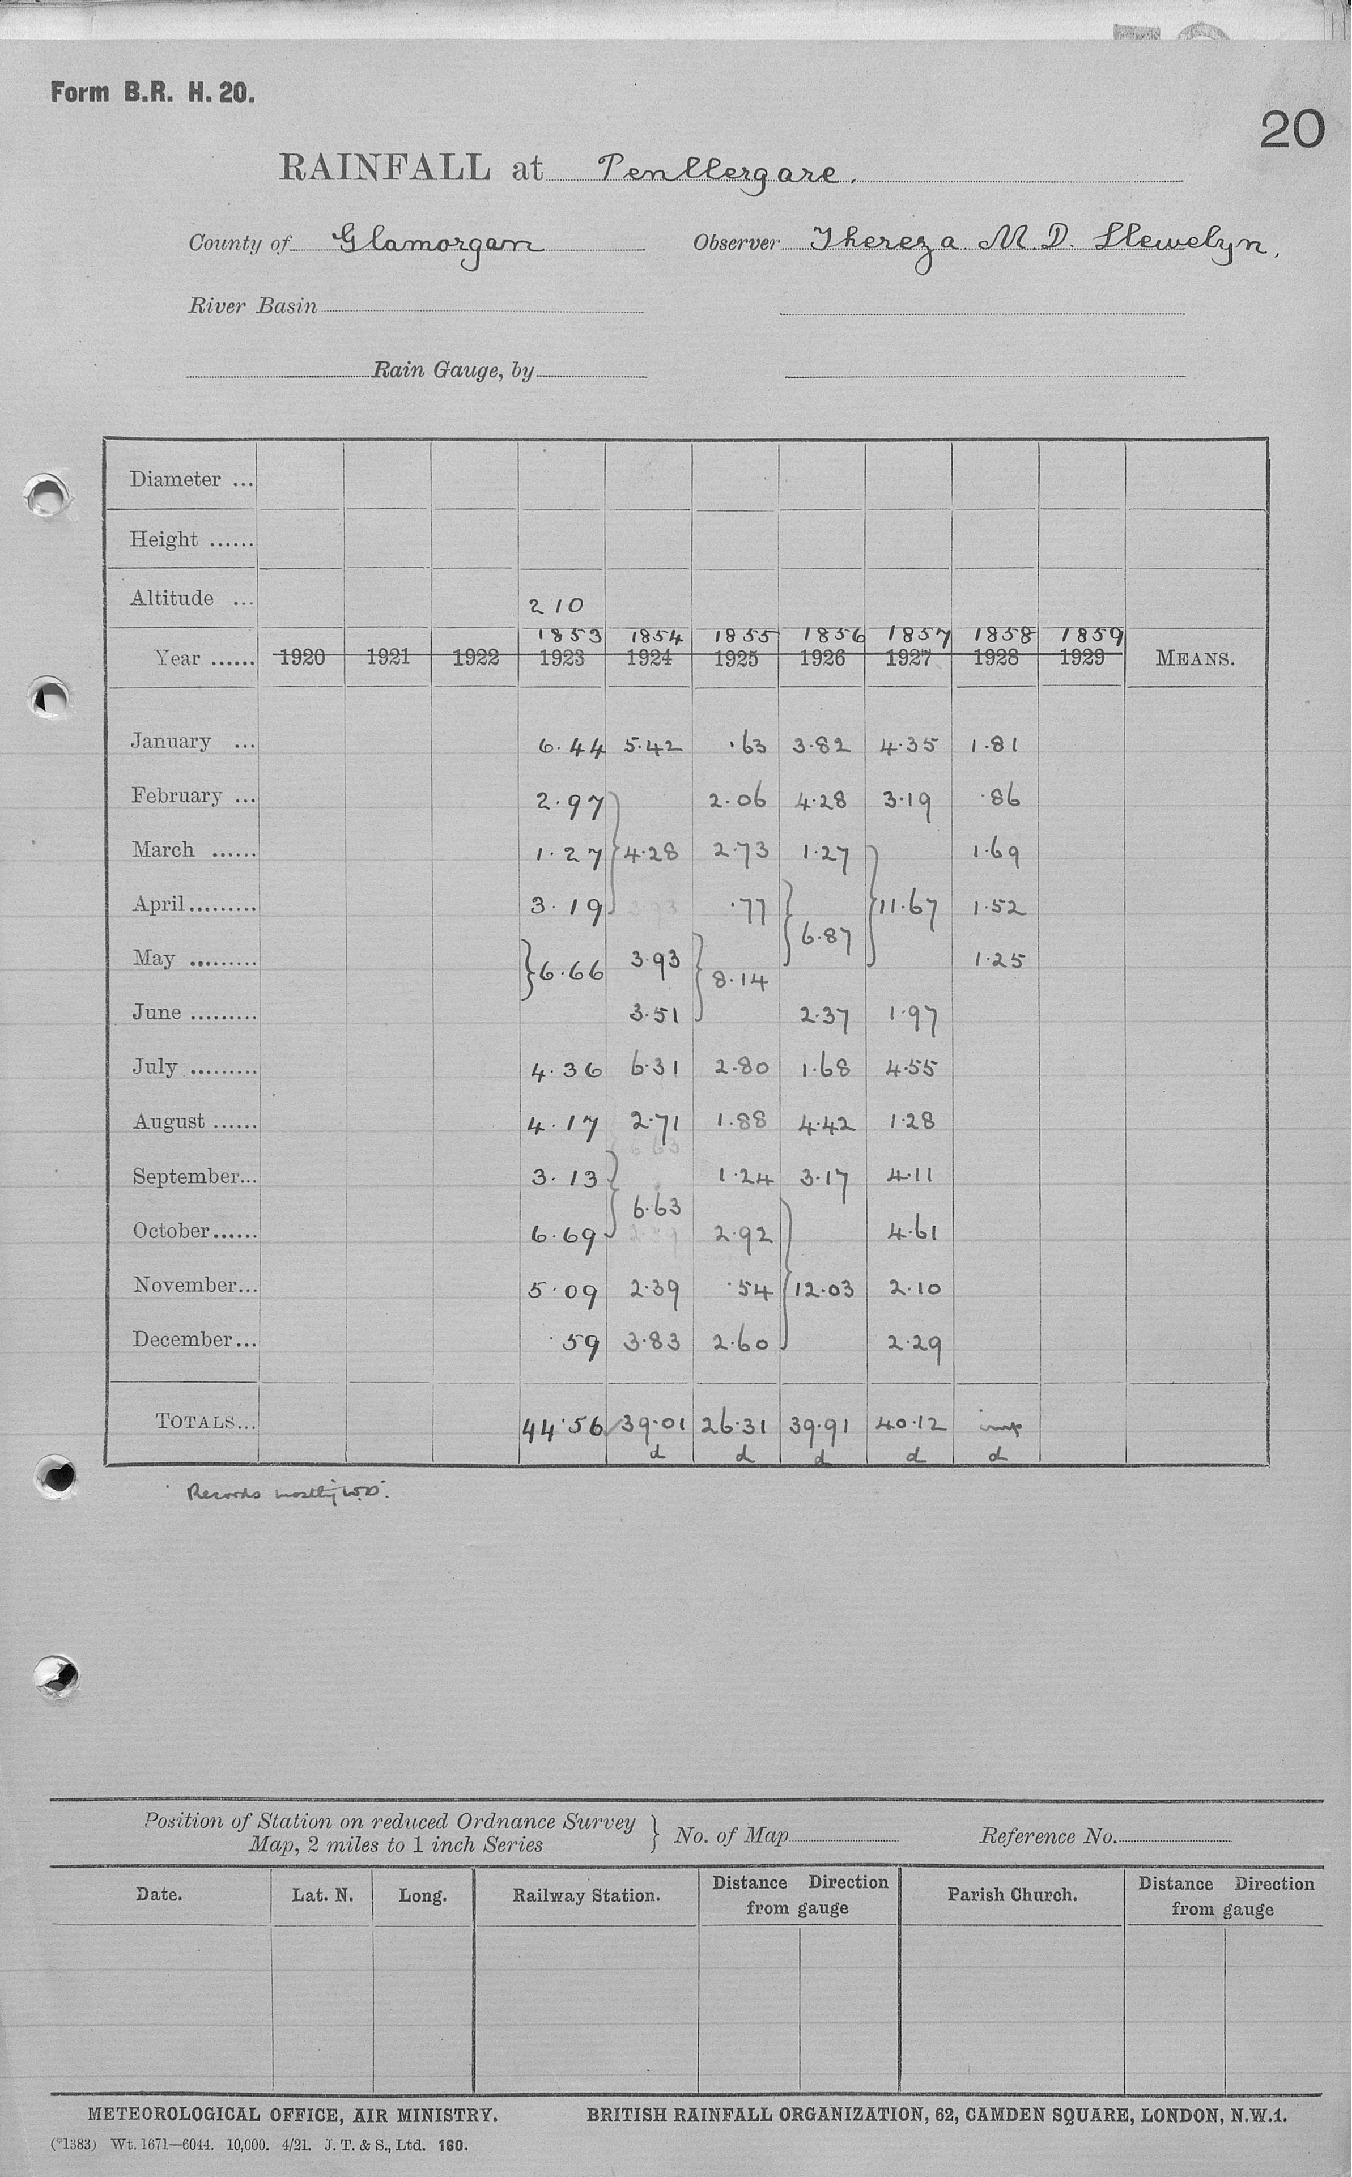 Form B.R. H. 20.
20
RAINFALL at Penllergare.
County of Glamorgan Observer Thereza M. D. Llewelyn.
River Basin
Rain Gauge, by
Diameter ...
Height ......
Altitude ... 210
1853 1854 1855 1856 1857 1858 1859
Year ...... 1920 1921 1922 1923 1924 1925 1926 1927 1928 1929 MEANS.
January ... 6.44 5.42 .63 3.82 4.35 1.81
February ... 2.97 2.06 4.28 3.19 .86
March ...... 1.27 } 4.28 2.73 1.27 1.69
April ......... 3.19 .77 } 11.67 1.52
} 6.87
May ......... 3.93 1.25
} 6.66 } 8.14
June ......... 3.51 2.37 1.97
July ......... 4.36 6.31 2.80 1.68 4.55
August ...... 4.17 2.71 1.88 4.42 1.28
September... 3.13 1.24 3.17 4.11
} 6.63
October...... 6.69 2.92 4.61
November... 5.09 2.39 .54 } 12.03 2.10
December... .59 3.83 2.60 2.29
TOTALS... 44.56 39.01 26.31 39.91 40.12 imp
d d d d d
Records mostly W.D.
Position of Station on reduced Ordnance Survey
Map, 2 miles to 1 inch Series } No. of Map Reference No.
Date. Lat. N. Long. Railway Station. Distance Direction from gauge Parish Church. Distance Direction from gauge
METEOROLOGICAL OFFICE, AIR MINISTRY. BRITISH RAINFALL ORGANIZATION, 62, CAMDEN SQUARE, LONDON, N.W.1.
(*1383) Wt. 1671—6044. 10,000. 4/21. J. T. & S., Ltd. 160.